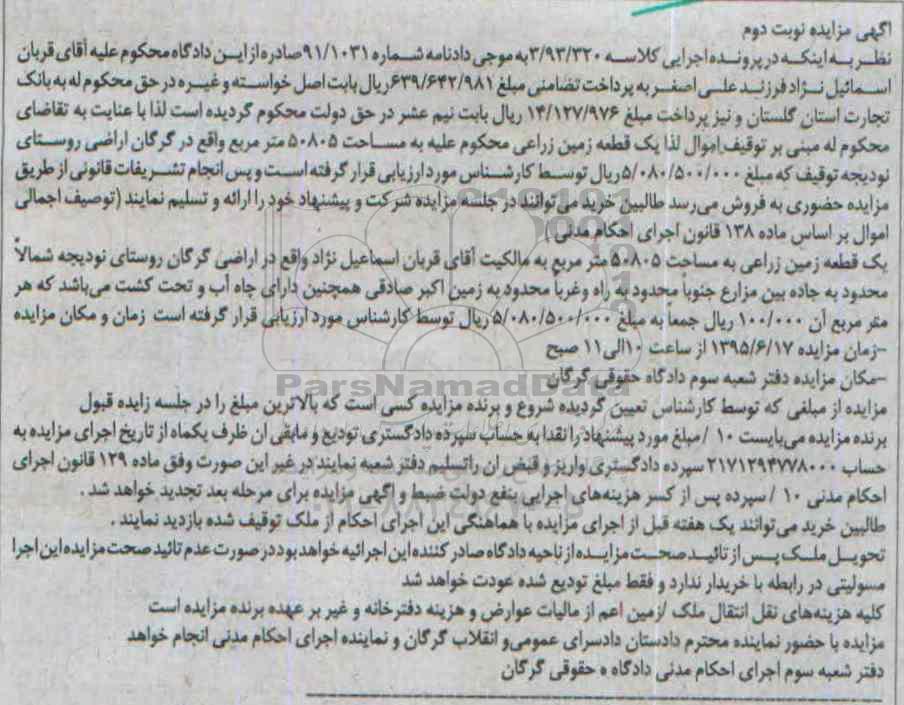 اگهی مزایده نوبت دوم
نظر به اینکه در پرونده اجرایی کلاسه ۳/۹۳/۳۲۰ به موجی دادنامه شماره ۹۱/۱۰۳۱ صادره از این دادگاه محکوم علیه آقای قربان
اسمائیل نژاد فرزند علی اصغر به پرداخت تضامنی مبلغ ۶۳۹/۶۴۲/۹۸۱ ریال بابت اصل خواسته و غیره در حق محکوم له به بانک
تجارت استان گلستان و نیز پرداخت مبلغ ۱۴/۱۲۷/۹۷۶ ریال بابت نیم عشر در حق دولت محکوم گردیده است لذا با عنایت به تقاضای
محکوم له مبنی بر توقیف اموال لذا یک قطعه زمین زراعی محکوم علیه به مساحت ۵۰۸۰۵ متر مربع واقع در گرگان اراضی روستای
نودیجه توقیف که مبلغ ۵/۰۸۰/۵۰۰/۰۰۰ ریال توسط کارشناس مورد ارزیابی قرار گرفته است و پس انجام تشریفات قانونی از طریق
مزایده حضوری به فروش می‌رسد طالبین خرید می توانند در جلسه مزایده شرکت و پیشنهاد خود را ارائه و تسلیم نمایند (توصیف اجمالی
اموال بر اساس ماده ۱۳۸ قانون اجرای احکام مدنی )
یک قطعه زمین زراعی به مساحت ۵۰۸۰۵ متر مربع به مالکیت آقای قربان اسماعیل نژاد واقع در اراضی گرگان روستای نودیجه شمالاً
محدود به جاده بین مزارع جنوباً محدود به راه وغرباً محدود به زمین اکبر صادقی همچنین دارای چاه آب و تحت کشت می‌باشد که هر
متر مربع آن ۱۰۰/۰۰۰ ریال جمعا به مبلغ ۵/۰۸۰/۵۰۰/۰۰۰ ریال توسط کارشناس مورد ارزیابی قرار گرفته است زمان و مکان مزایده
-زمان مزایده ۱۳۹۵/۶/۱۷ از ساعت ۱۰الی ۱۱ صبح
-مکان مزایده دفتر شعبه سوم دادگاه حقوقی گرگان
ParsNamadData
مزایده از مبلغی که توسط کارشناس تعیین گردیده شروع و برنده مزایده کسی است که بالاترین مبلغ را در جلسه زایده قبول
برنده مزایده می‌بایست ۱۰ / مبلغ مورد پیشنهاد را نقدا به حساب سپرده دادگستری تودیع و مابقی ان ظرف یکماه از تاریخ اجرای مزایده به
حساب ۲۱۷۱۲۹۴۷۷۸۰۰۰ سپرده دادگستری واریز و قبض ان را تسلیم دفتر شعبه نمایند در غیر این صورت وفق ماده ۱۲۹ قانون اجرای
احکام مدنی ۱۰ / سپرده پس از کسر هزینه‌های اجرایی بنفع دولت ضبط و اگهی مزایده برای مرحله بعد تجدید خواهد شد .
طالبین خرید می‌توانند یک هفته قبل از اجرای مزایده با هماهنگی این اجرای احکام از ملک توقیف شده بازدید نمایند .
تحویل ملک پس از تائید صحت مزایده از ناحیه دادگاه صادر کننده این اجرائیه خواهد بود در صورت عدم تائید صحت مزایده این اجرا
مسولیتی در رابطه با خریدار ندارد و فقط مبلغ تودیع شده عودت خواهد شد
کلیه هزینه‌های نقل انتقال ملک /زمین اعم از مالیات عوارض و هزینه دفترخانه و غیر بر عهده برنده مزایده است
مزایده با حضور نماینده محترم دادستان دادسرای عمومی و انقلاب گرگان و نماینده اجرای احکام مدنی انجام خواهد
دفتر شعبه سوم اجرای احکام مدنی دادگاه ه حقوقی گرگان